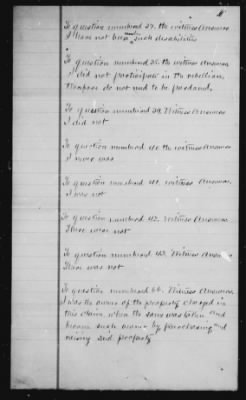 To question numbered 37. the witness Answers
I have not been under such disabilities
To question numbered 38 the witness Answers
I did not participate in the rebellion,
therefore do not need to be pardoned.
To question numbered 39. Witness Answers
I did not
To question numbered 40 the witness Answers
I never was
To question numbered 41. witness Answers
I was not
To question numbered 42. Witness Answers
There were not
To question numbered 43. Witness Answers
There was not
To question numbered 66. Witness Answers
I was the owner of the property charged in
this claim, when the same was taken and
became such owner by purchasing and
raising said property